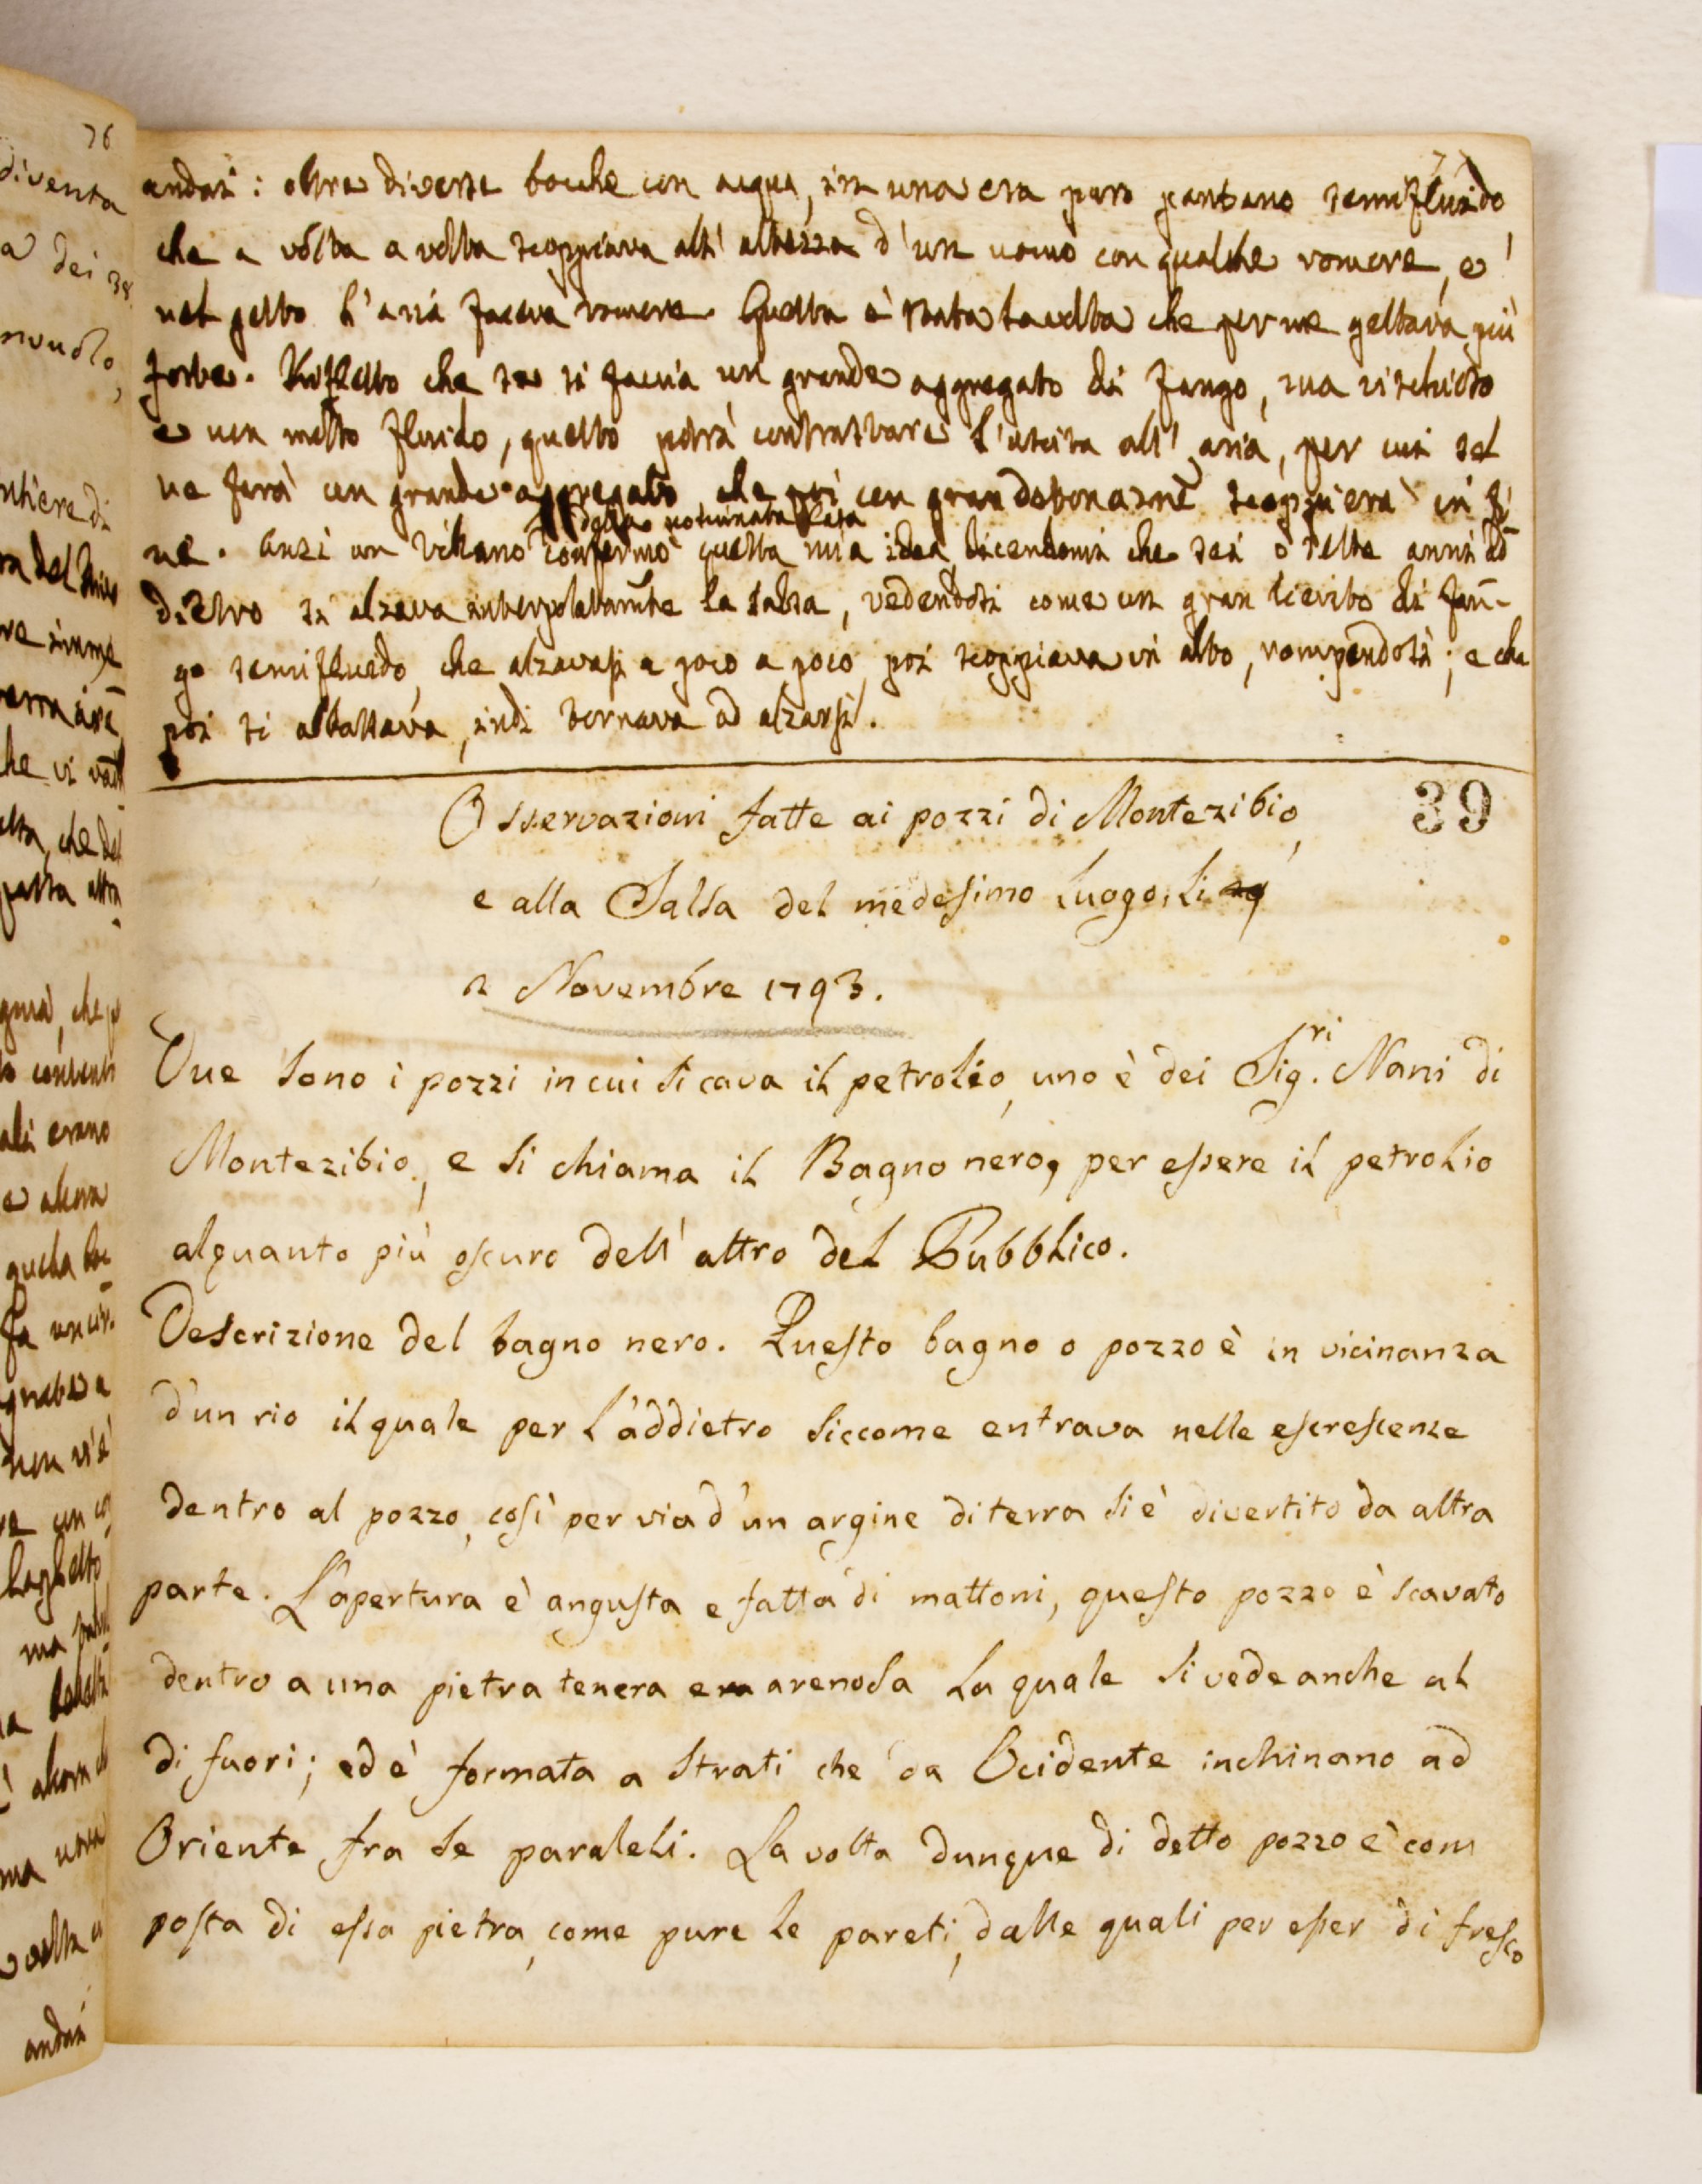 76
diventa
a dei 38
nuvolo,
77
andai: oltre diverse bocche con acqua, in una era puro pantano semifluido
che a volta a volta scoppiava all' altezza d'un uomo con qualche romore, e
nel getto l'aria faceva romore. Questa è stata la volta che per me gettava più
forte. Rifletto che se si faccia un grande aggregato di fango, ma vischioso
e non molto fluido, questo potrà contrastare l'uscita all' aria, per cui sel
ne farà un grande aggregato, che poi con gran detonazne scoppierà in fi
della nominata casa
ne. Anzi un Villano confermò questa mia idea dicendomi che sei o sette anni ad
dietro si alzava interpolatamte la salsa, vedendosi come un gran lievito di fan-
go semifluido, che alzavasi a poco a poco, poi scoppiava in alto, rompendosi; e che
poi si abbassava, indi tornava ad alzarsi.
39
Osservazioni fatte ai pozzi di Montezibio,
e alla Salsa del medesimo luogo, li
2 Novembre 1793.
Due sono i pozzi in cui si cava il petrolio, uno è dei Sig.ri Nani di
Montezibio, e si chiama il Bagno nero, per essere il petrolio
alquanto più oscuro dell' altro del Pubblico.
Descrizione del bagno nero. Questo bagno o pozzo è in vicinanza
d'un rio il quale per l'addietro siccome entrava nelle escrescenze
dentro al pozzo, così per via d'un argine di terra si è divertito da altra
parte. L'apertura è angusta e fatta di mattoni, questo pozzo è scavato
dentro a una pietra tenera e arenosa la quale si vede anche al
di fuori; ed è formata a strati che da Ocidente inchinano ad
Oriente fra se paraleli. La volta dunque di detto pozzo è com
posta di essa pietra, come pure le pareti, dalle quali per esser di fresco